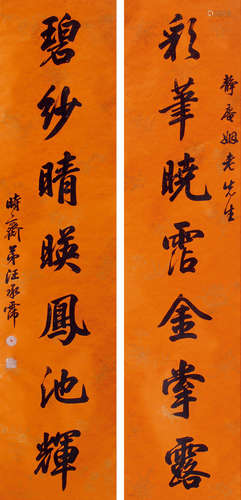 靜庵姻老先生
彩筆曉霑金掌露
碧紗晴暎鳳池輝
時齋弟汪承霈